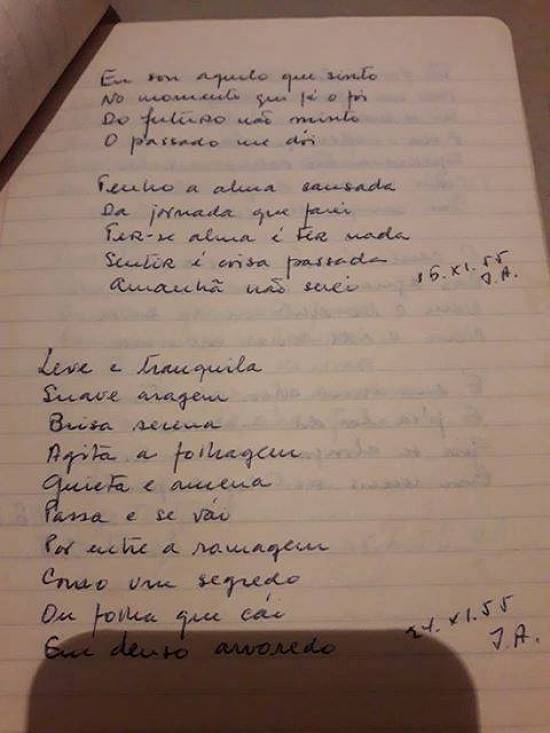 Eu sou aquilo que sinto
No momento que já o foi
Do futuro não minto
O passado me dói
Tenho a alma cansada
Da jornada que farei
Ter-se alma é ter nada
Sentir é coisa passada
Amanhã não serei
15.XI.55
J.A.
Leve e tranquila
Suave aragem
Brisa serena
Agita a folhagem
Quieta e amena
Passa e se vai
Por entre a ramagem
Como um segredo
Ou folha que cai
Em denso arvoredo
24.XI.55
J.A.